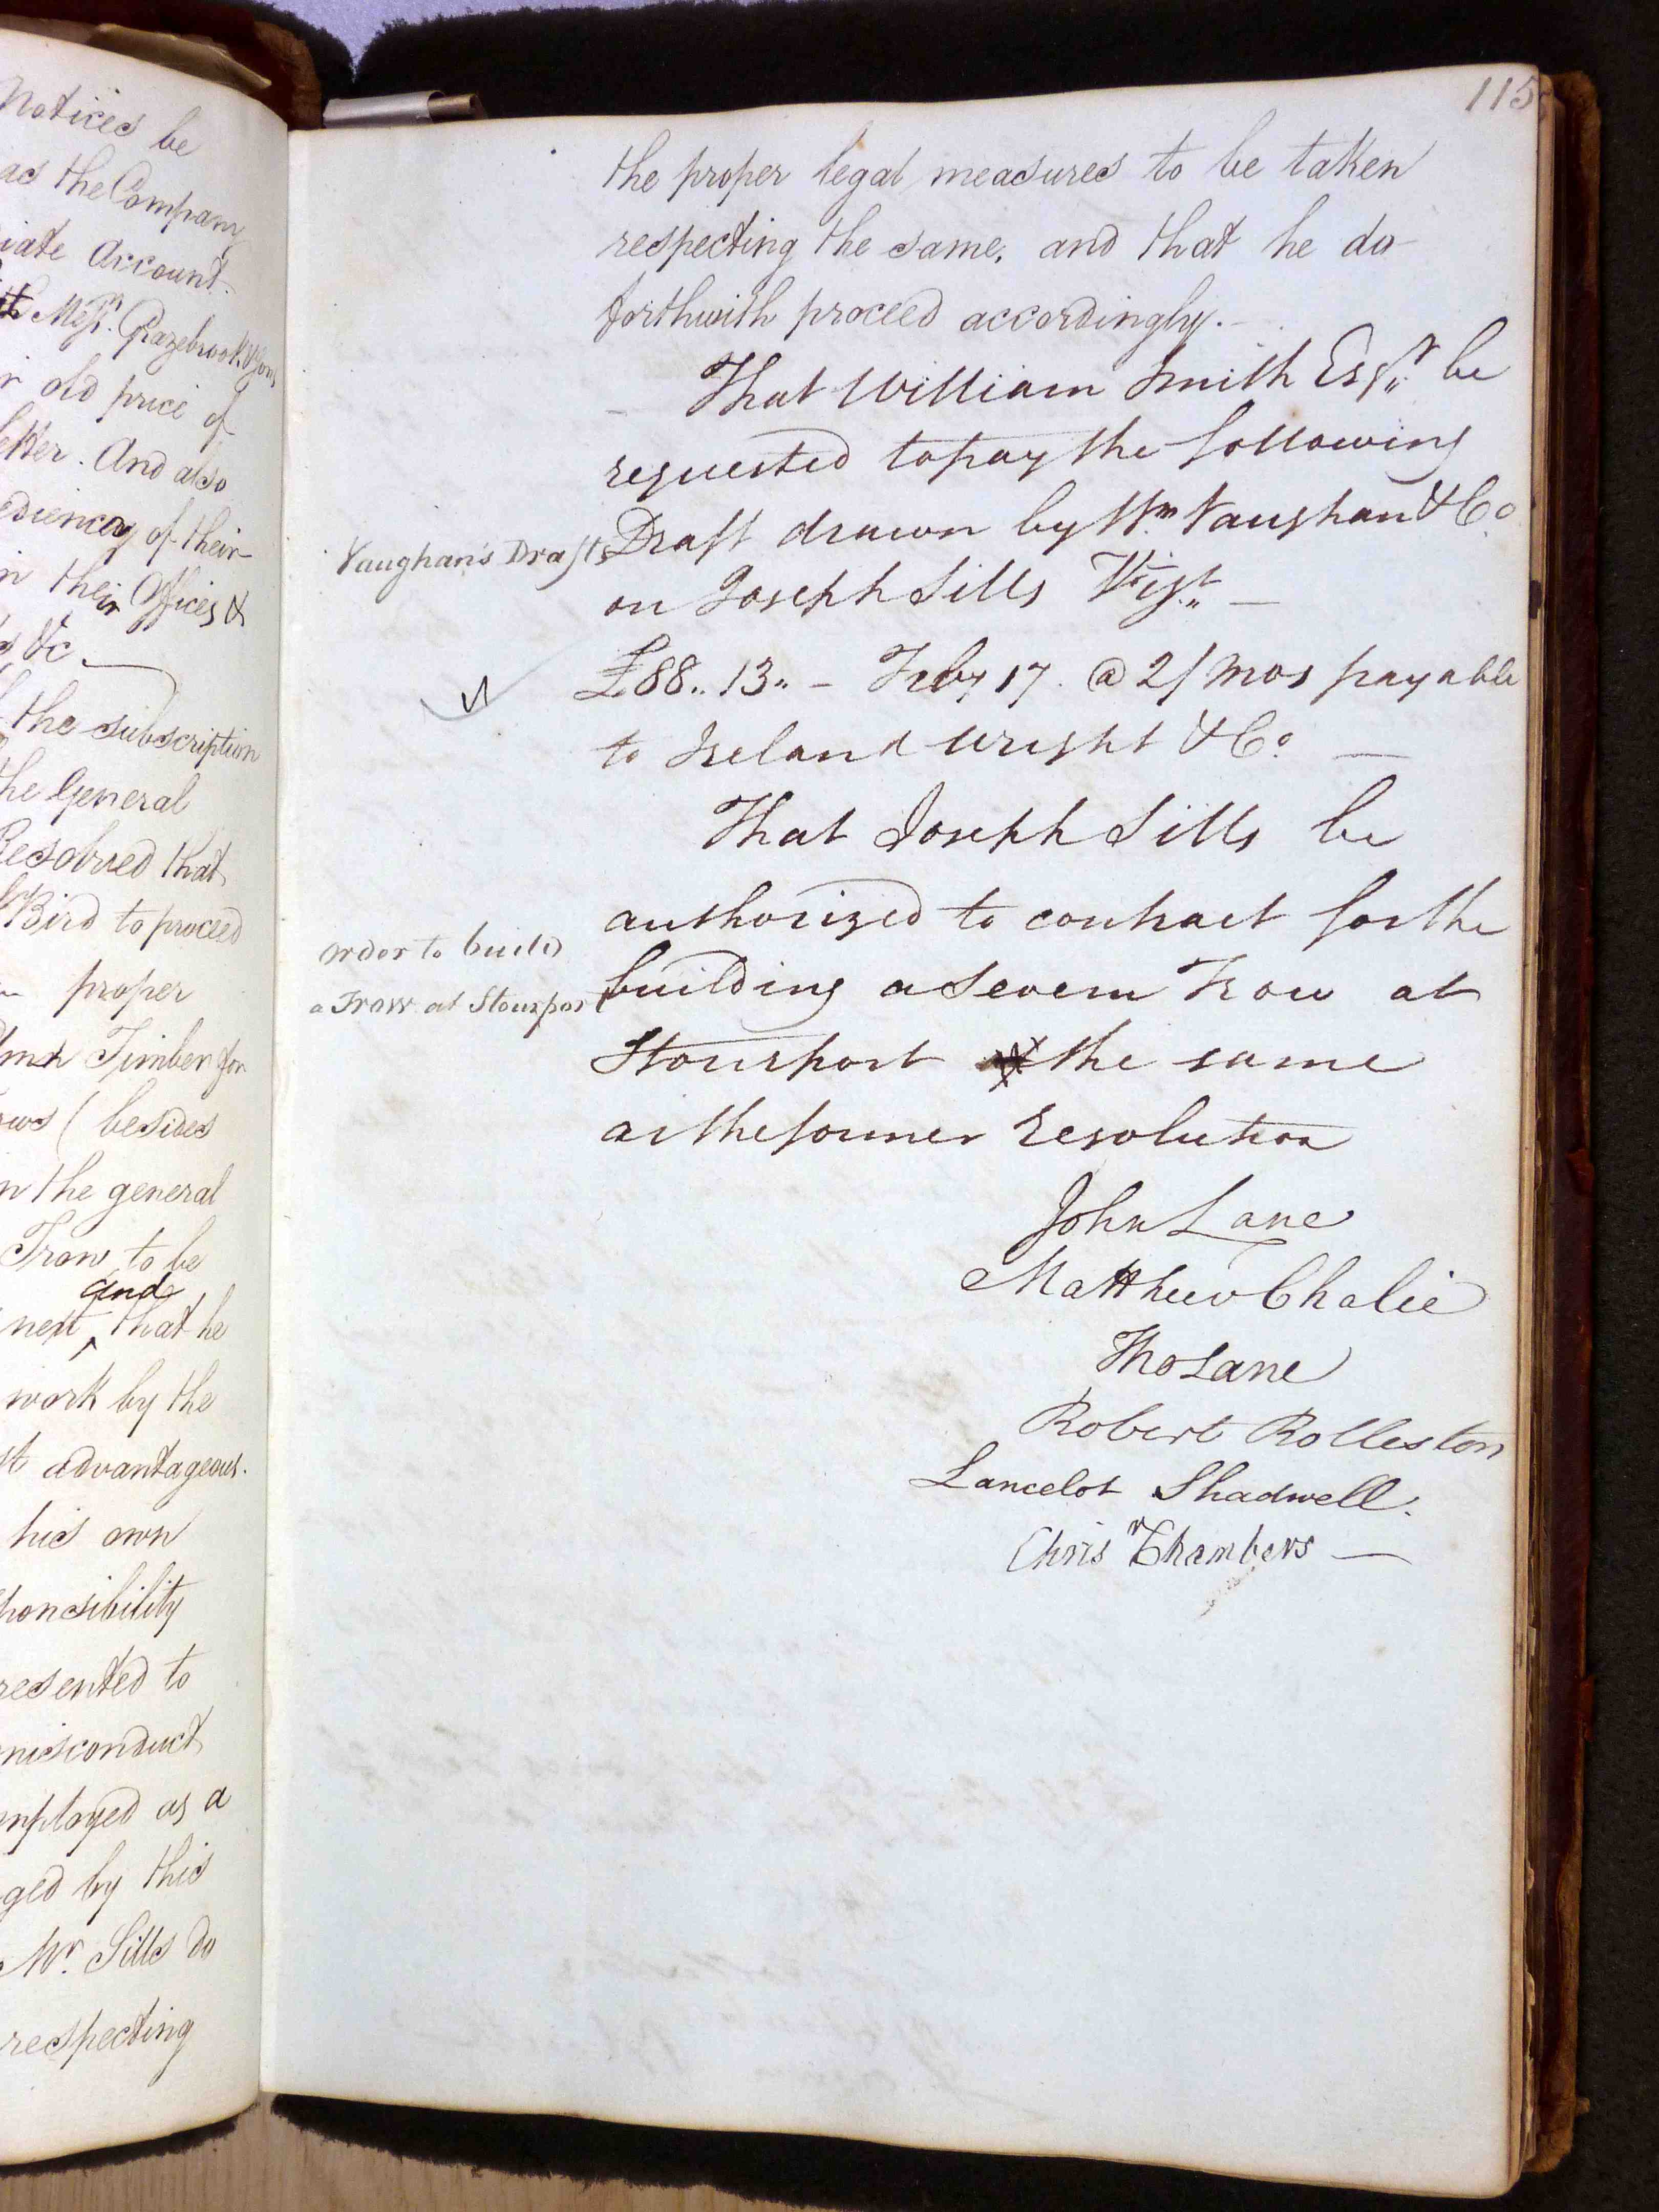 Notices be
as the Company
iate Account.
Messrs. Grazebrook & Sons
r old price of
etter. And also
ediency of their
n their Offices &
s &c
the subscription
the General
Resolved that
Bird to proceed
proper
Timber for
ws ( besides
n the general
Trow to be
and
next ^ that he
work by the
st advantageous.
his own
ponsibility
resented to
misconduct
mployed as a
ged by this
Mr. Sills do
respecting
115
the proper legal measures to be taken
respecting the same, and that he do
forthwith proceed accordingly. —
— That William Smith Esqr. be
requested to pay the following
Vaughan's Drafts
Draft drawn by Wm Vaughan & Co
on Joseph Sills Vizt. —
£88.. 13.. – Feby 17. @ 2/mos payable
to Ireland Wright & Co. —
That Joseph Sills be
authorized to contract for the
order to build
building a Severn Trow at
a Trow at Stourport
Stourport the same
as the former resolution
John Lane
Matthew Chalie
Tho Lane
Robert Rolleston
Lancelot Shadwell.
Chrisr Chambers —